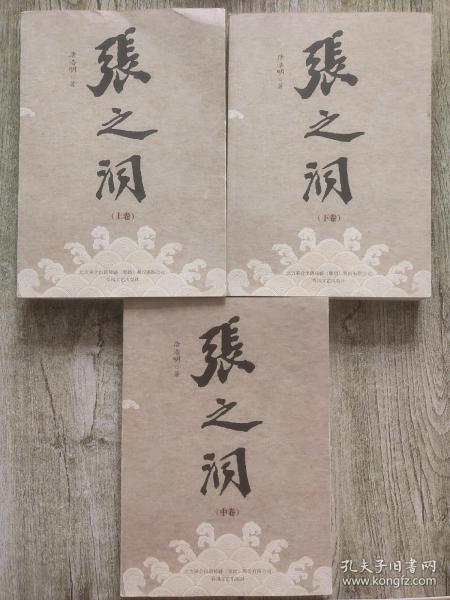 唐浩明 著
張之洞
(上卷)
北方联合出版传媒(集团)股份有限公司
春风文艺出版社
唐浩明 著
張之洞
(下卷)
北方联合出版传媒(集团)股份有限公司
春风文艺出版社
唐浩明 著
張之洞
(中卷)
北方联合出版传媒(集团)股份有限公司
春风文艺出版社
孔夫子旧书网